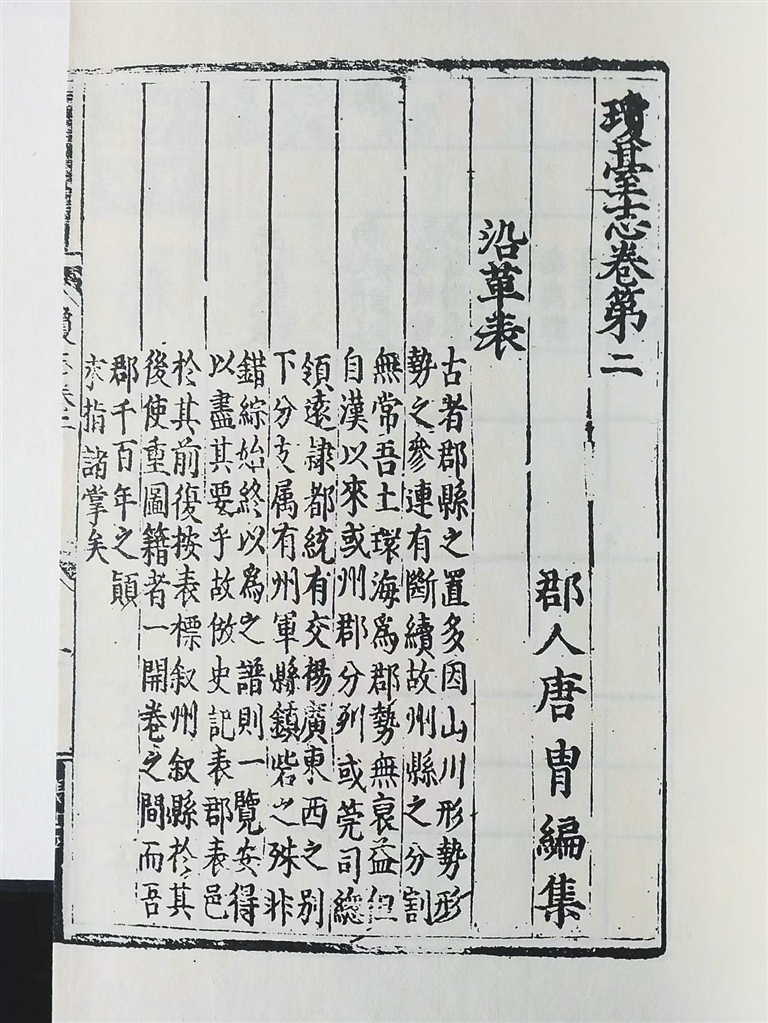 瓊臺志卷第二
郡人唐冑編集
沿革表
古者郡縣之置多因山川形勢形
勢之參連有斷續故州縣之分割
無常吾土環海爲郡勢無裒益但
自漢以來或州郡分列或莞司總
領遠隸都統有交楊廣東西之別
下分支属有州軍縣鎮砦之殊非
錯綜始終以爲之譜則一覽安得
以盡其要乎故倣史記表郡表邑
於其前復按表標叙州叙縣於其
後使重圖籍者一開卷之間而吾
郡千百年之顛
末指諸掌矣